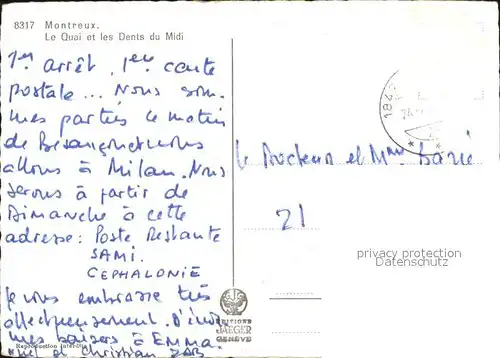 8317 Montreux.
Le Quai et les Dents du Midi
1er arrêt, 1ère carte
postale... Nous som-
mes parties ce matin
de Besançon et nous
allons à Milan. Nous
serons à partir de
Dimanche à cette
adresse : Poste Restante
SAMI.
CEPHALONIE
Je vous embrasse très
affectueusement.
mes baisers à EMMA.
et Christian
Reproduction interdite
EDITIONS
JAEGER
GENÈVE
1842
le Docteur et Mme
21
privacy protection
Datenschutz